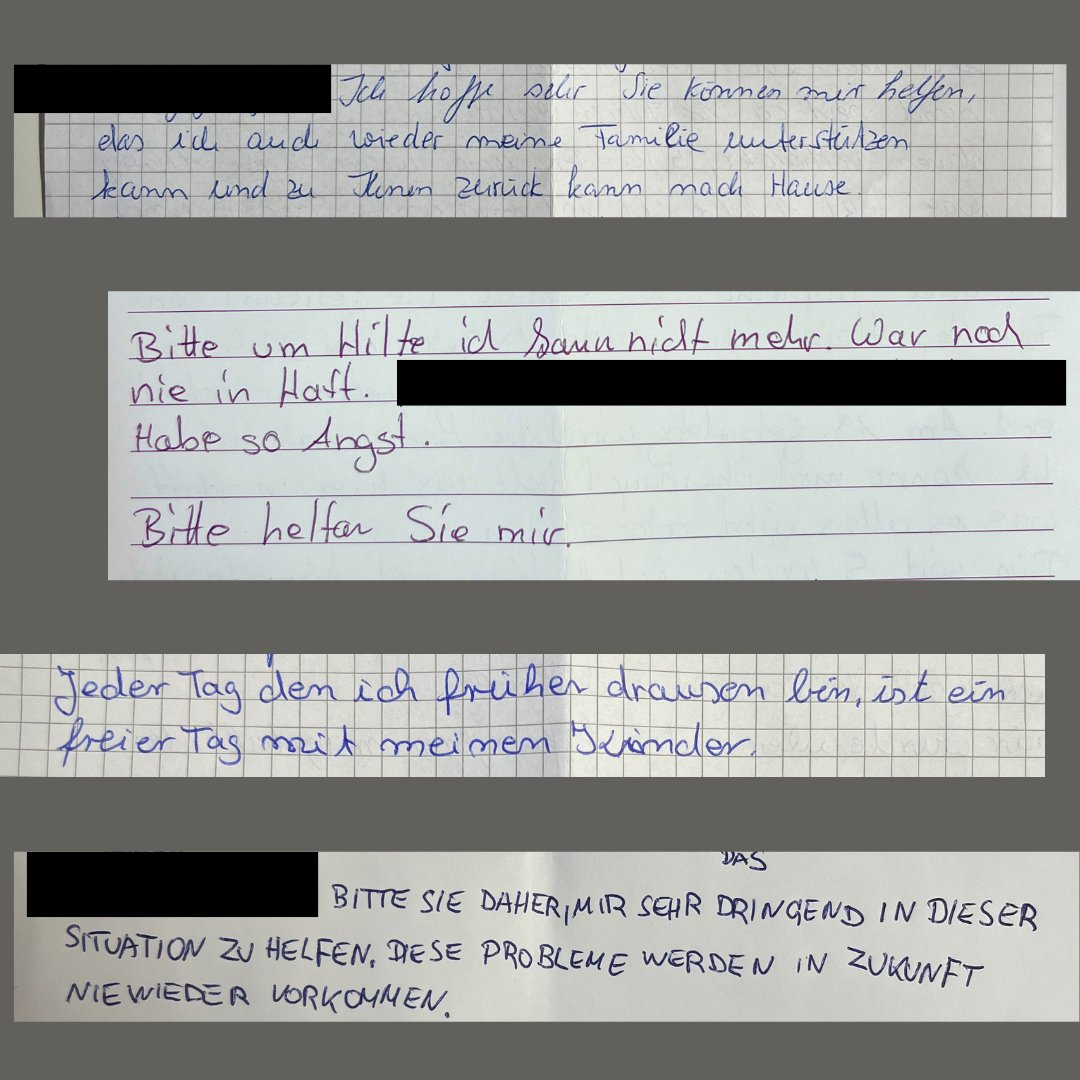 Ich hoffe sehr Sie können mir helfen,
das ich auch wieder meine Familie unterstützen
kann und zu Ihnen zurück kann nach Hause.
Bitte um Hilfe ich kann nicht mehr. War noch
nie in Haft.
Habe so Angst.
Bitte helfen Sie mir.
Jeder Tag den ich früher drausen bin, ist ein
freier Tag mit meinen Kinder.
DAS
BITTE SIE DAHER, MIR SEHR DRINGEND IN DIESER
SITUATION ZU HELFEN. DIESE PROBLEME WERDEN IN ZUKUNFT
NIE WIEDER VORKOMMEN.